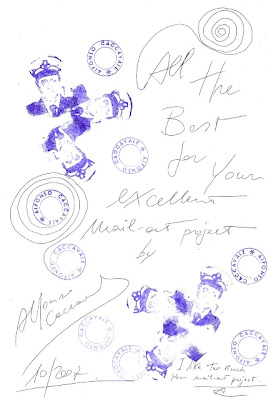 All
the
Best
for Your
excellent
Mail-art project
by
ALFONSO CACCAVALE
ALFONSO CACCAVALE
ALFONSO CACCAVALE
ALFONSO CACCAVALE
ALFONSO CACCAVALE
ALFONSO CACCAVALE
ALFONSO CACCAVALE
Alfonso
10/2007
I like too much
Your mailart project.